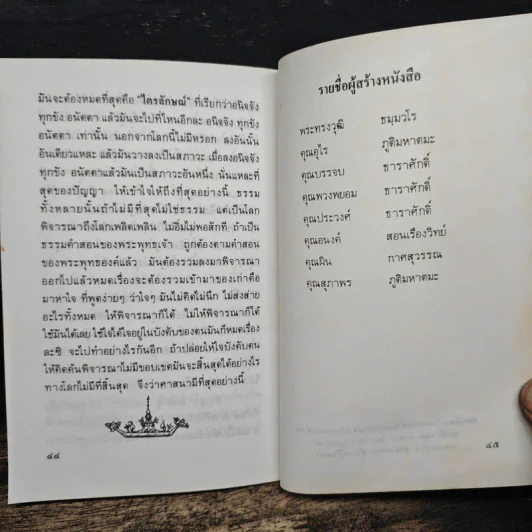 มันจะต้องหมดที่สุดคือ "ไตรลักษณ์" ที่เรียกว่าอนิจจัง
ทุกขัง อนัตตา แล้วมันจะไปที่ไหนอีกละ อนิจจัง ทุกขัง
อนัตตา เท่านั้น นอกจากโลกนี้ไม่มีหรอก ลงอันนั้น
อันเดียวแหละ แล้วมันวางลงเป็นสภาวะ เมื่อลงอนิจจัง
ทุกขัง อนัตตาแล้วมันเป็นสภาวะอันหนึ่ง นั่นแหละที่
สุดของปัญญา ให้เข้าใจให้ถึงที่สุดอย่างนี้ ธรรม
ทั้งหลายนั้นถ้าไม่มีที่สุดไม่ใช่ธรรม แต่เป็นโลก
พิจารณาถึงโลกเพลิดเพลิน ไม่อิ่มไม่พอสักที ถ้าเป็น
ธรรมคำสอนของพระพุทธเจ้า ถูกต้องตามคำสอน
ของพระพุทธองค์แล้ว มันต้องรวมลงมาพิจารณา
ออกไปแล้วหมดเรื่องจะต้องรวมเข้ามาของเก่าคือ
มาหาใจ ที่พูดง่ายๆ ว่าใจๆ มันไม่คิดไม่นึก ไม่ส่งส่าย
อะไรทั้งหมด ให้พิจารณาก็ได้ ไม่ให้พิจารณาก็ได้
ใช้มันได้เลย ใช้ใจได้ใจอยู่ในบังคับของตนมันก็หมดเรื่อง
ละซิ จะไปทำอย่างไรกันอีก ถ้าปล่อยให้ใจบังคับตน
ให้คิดค้นพิจารณาไม่มีขอบเขตมันจะสิ้นสุดได้อย่างไร
ทางโลกไม่มีที่สิ้นสุด จึงว่าศาสนามีที่สุดอย่างนี้
๔๔
รายชื่อผู้สร้างหนังสือ
พระทรงวุฒิ ธมฺมวโร
คุณอุไร ภูติมหาตมะ
คุณบรรจบ ธาราศักดิ์
คุณพวงพยอม ธาราศักดิ์
คุณประวงศ์ ธาราศักดิ์
คุณอนงค์ สอนเรืองวิทย์
คุณผิน กาศสุวรรณ
คุณสุภาพร ภูติมหาตมะ
๔๕